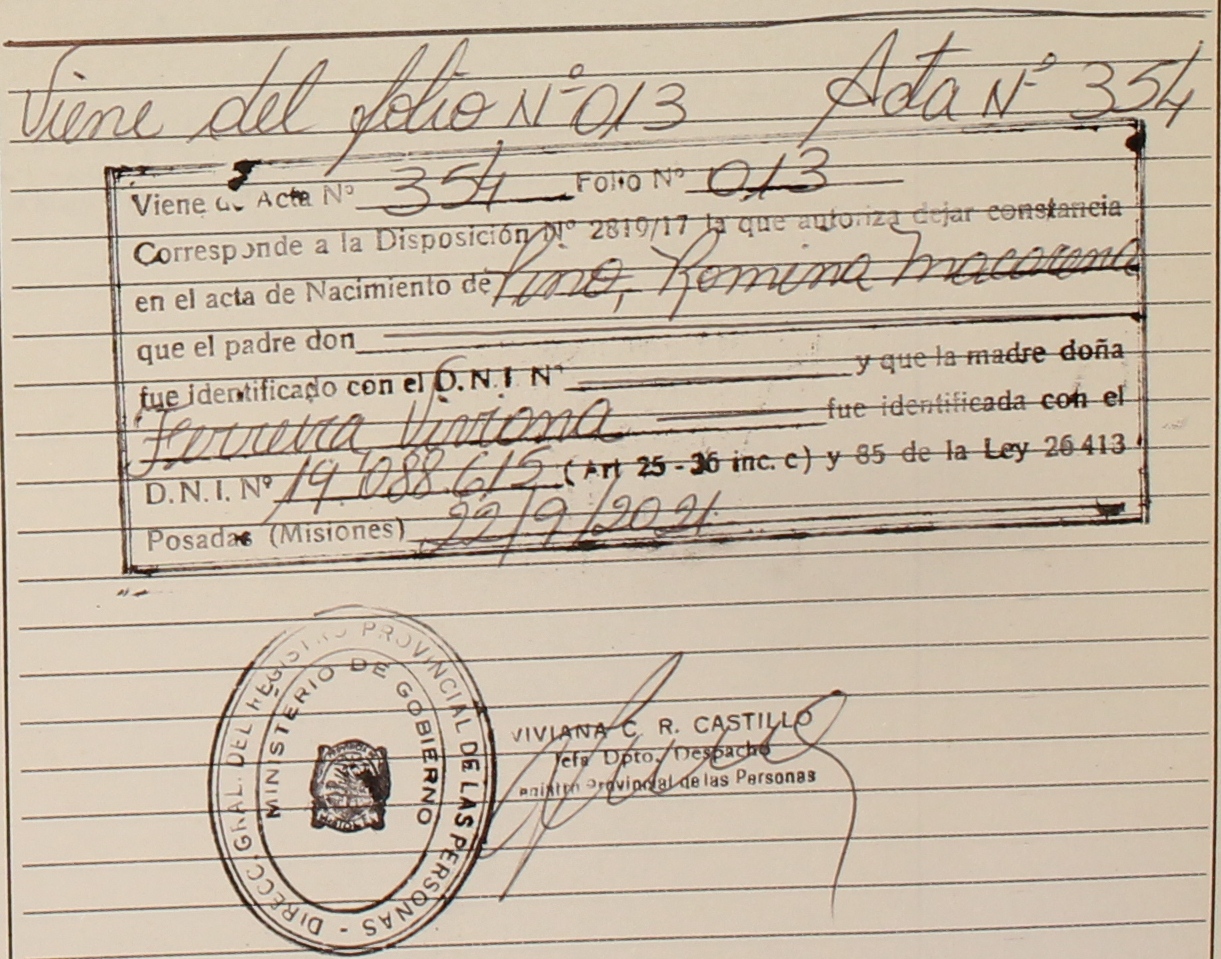 Viene del folio Nº 013 Acta Nº 354
Viene de Acta Nº 354 Folio Nº 013
Corresponde a la Disposición Nº 2819/17 la que autoriza dejar constancia
en el acta de Nacimiento de Pino, Romina Macarena
que el padre don
fue identificado con el D.N.I. Nº y que la madre doña
Ferreira Viviana fue identificada con el
D.N.I. Nº 19.088.615 (Art 25 - 36 inc. c) y 85 de la Ley 26 413
Posadas (Misiones) 22/9/2021
DIRECC. GRAL. DEL REGISTRO PROVINCIAL DE LAS PERSONAS -
MINISTERIO DE GOBIERNO
VIVIANA C. R. CASTILLO
Jefa Dpto. Despacho
Registro Provincial de las Personas